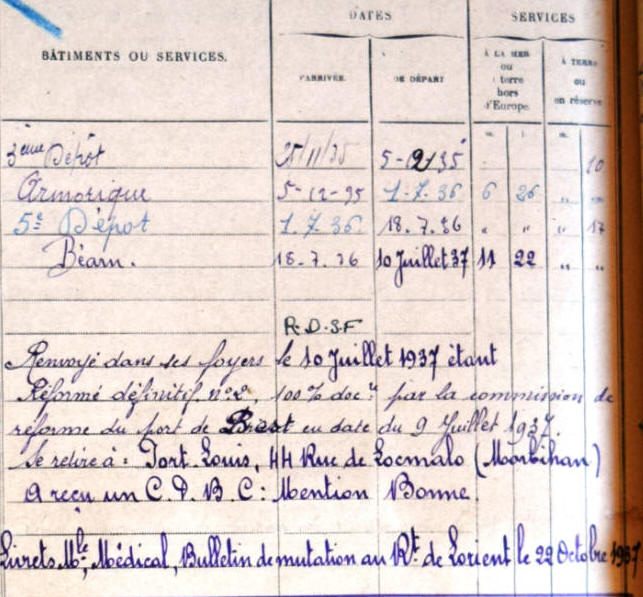 DATES SERVICES
BÂTIMENTS OU SERVICES. D'ARRIVÉE. DE DÉPART À LA MER ou à terre hors d'Europe À TERRE ou en réserve
m. j. m.
3ème Dépôt 25/11/35 5-12/35 10
Armorique 5-12-35 1.7.36 6 26 " "
5e Dépôt 1.7.36. 18.7.36 " " " 17
Béarn. 18-7.36 10 Juillet 37 11 22 " "
R.D.S.F
Renvoyé dans ses foyers le 10 Juillet 1937 étant
Réformé définitif n°2, 100% doc.t par la commission de
réforme du port de Brest en date du 9 Juillet 1937.
Se retire à : Port Louis, 44 Rue de Locmalo (Morbihan)
A reçu un C.D.B.C: Mention Bonne.
Livrets Mle, Médical, Bulletin de mutation au Rt de Lorient le 22 Octobre 1937